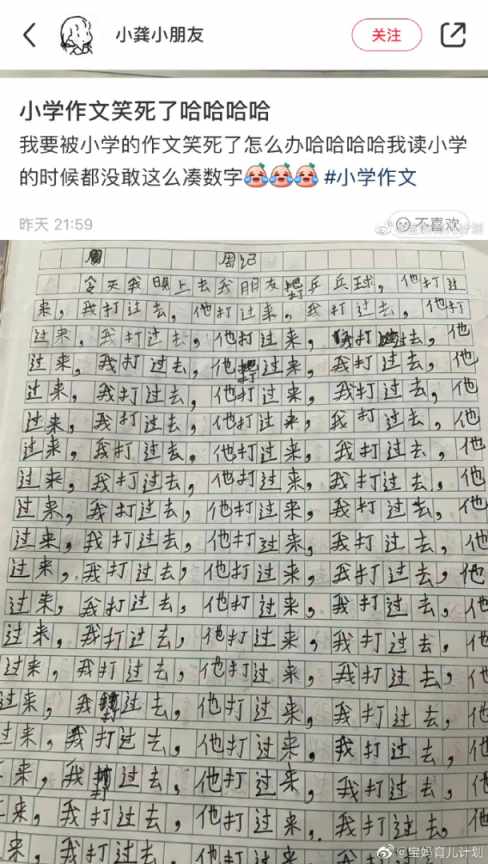 小龚小朋友
关注
小学作文笑死了哈哈哈哈
我要被小学的作文笑死了怎么办哈哈哈哈我读小学
的时候都没敢这么凑数字 #小学作文
昨天 21:59
不喜欢
周记
今天我晚上去我朋友打乒乓球，他打过
来，我打过去，他打过来，我打过去，他打
过来，我打过去，他打过来，我打过去，他
过来，我打过去，他打过来，我打过去，他
过来，我打过去，他打过来，我打过去，他
过来，我打过去，他打过来，我打过去，他
过来，我打过去，他打过来，我打过去，他
过来，我打过去，他打过来，我打过去，他
过来，我打过去，他打过来，我打过去，他
过来，我打过去，他打过来，我打过去，他
过来，我打过去，他打过来，我打过去，他
过来，我打过去，他打过来，我打过去，
过来，我打过去，他打过来，我打过去，
过来，我打过去，他打过来，我打过去，
过来，我打过去，他打过来，我打过去，
过来，我打过去，他打过来，我打过去，
来，我打过去，他打过来，我打过去，
来，我打过去，他打过来，我打过去，
来，我打过去，他打过来，我打过去，
@宝妈育儿计划